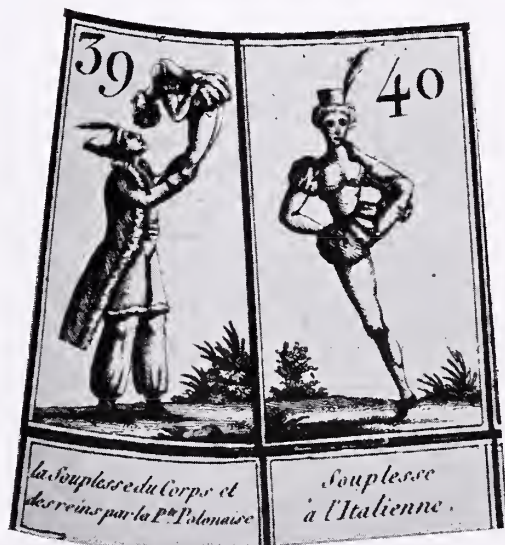 39
40
la Souplesse du Corps et
des reins par la P.te Polonaise
Souplesse
à l'Italienne.